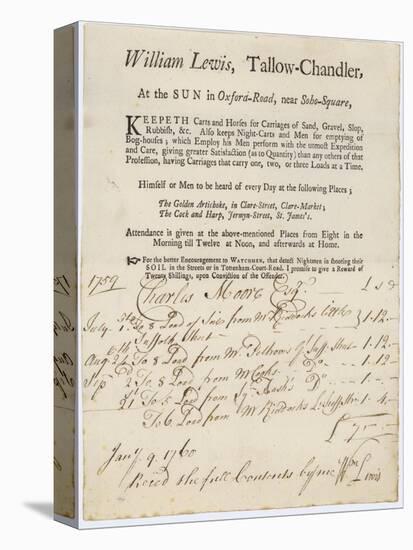 William Lewis, Tallow-Chandler,
At the SUN in Oxford-Road, near Soho-Square,
KEEPETH Carts and Horses for Carriages of Sand, Gravel, Slop,
Rubbish, &c. Also keeps Night-Carts and Men for emptying of
Bog-houses; which Employ his Men perform with the utmost Expedition
and Care, giving greater Satisfaction (as to Quantity) than any others of that
Profession, having Carriages that carry one, two, or three Loads at a Time.
Himself or Men to be heard of every Day at the following Places;
The Golden Artichoke, in Clare-Street, Clare-Market;
The Cock and Harp, Jermyn-Street, St. James's.
Attendance is given at the above-mentioned Places from Eight in the
Morning till Twelve at Noon, and afterwards at Home.
☞ For the better Encouragement to WATCHMEN, that detect Nightmen in shooting their
SOIL in the Streets or in Tottenham-Court-Road. I promise to give a Reward of
Twenty Shillings, upon Conviction of the Offender.
1759 Charles Moore Esqr. L s d
July To 8 Load of from Mr Riddocks little 3 1.12.
Suffolk Street
Augt To 8 Load from Mr Suff Street 1.12.
Sep 2 To 8 Load from Mr Do 1.12
21 To 5 Load from Do 1
To 6 Load from Mr Riddocks Suff Str 1.4
£7
Jany 9. 1760
Reced the full Contents by me Wm Lewis